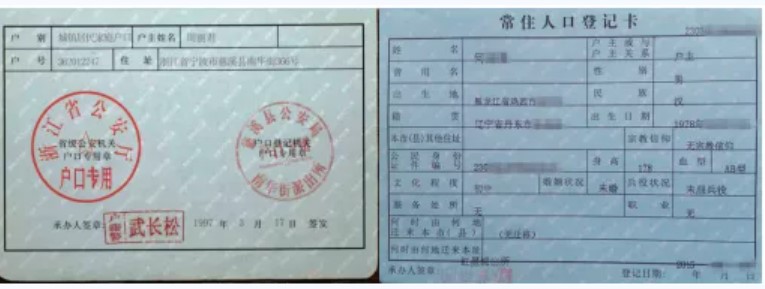 户 别 城镇居民家庭户口 户主姓名
户 号 363012247 住 址 浙江省宁波市慈溪县南华街366号
浙江省公安厅
省级公安机关
户口专用章
户口专用
慈溪县公安局
户口登记机关
户口专用章
南华街派出所
承办人签章: 户籍 武长松 1997 年 3 月 17日 签发
常住人口登记卡
姓 名 何 户主或与户主关系 户主
曾用名 性 别 男
出生地 黑龙江省鸡西市 民 族 汉
籍 贯 辽宁省丹东市 出生日期 1978年
本市(县)其他住址 宗教信仰 无宗教信仰
公民身份证件编号 身 高 178 血 型 AB型
文化程度 初中 婚姻状况 未婚 兵役状况 未服兵役
服务处所 无 职 业 无
何时由何地迁来本市(县)
何时由何地迁来本址
承办人签章: 登记日期: 2015 年